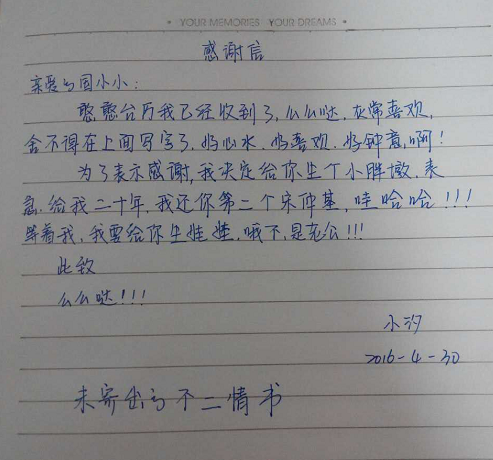 • YOUR MEMORIES YOUR DREAMS •
感谢信
亲爱的国小小:
憨憨台历我已经收到了,么么哒,灰常喜欢,
舍不得在上面写字了,好心水,好喜欢,好钟意,啊!
为了表示感谢,我决定给你生个小胖墩,表
急,给我二十年,我还你第二个宋仲基,哇哈哈!!!
等着我,我要给你生娃娃,哦不,是充公!!!
此致
么么哒!!!
小汐
2016-4-30
未寄出的不二情书